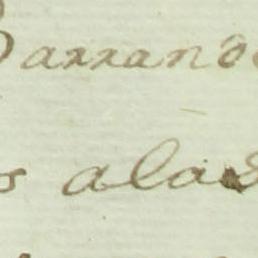 Barrano
s alas